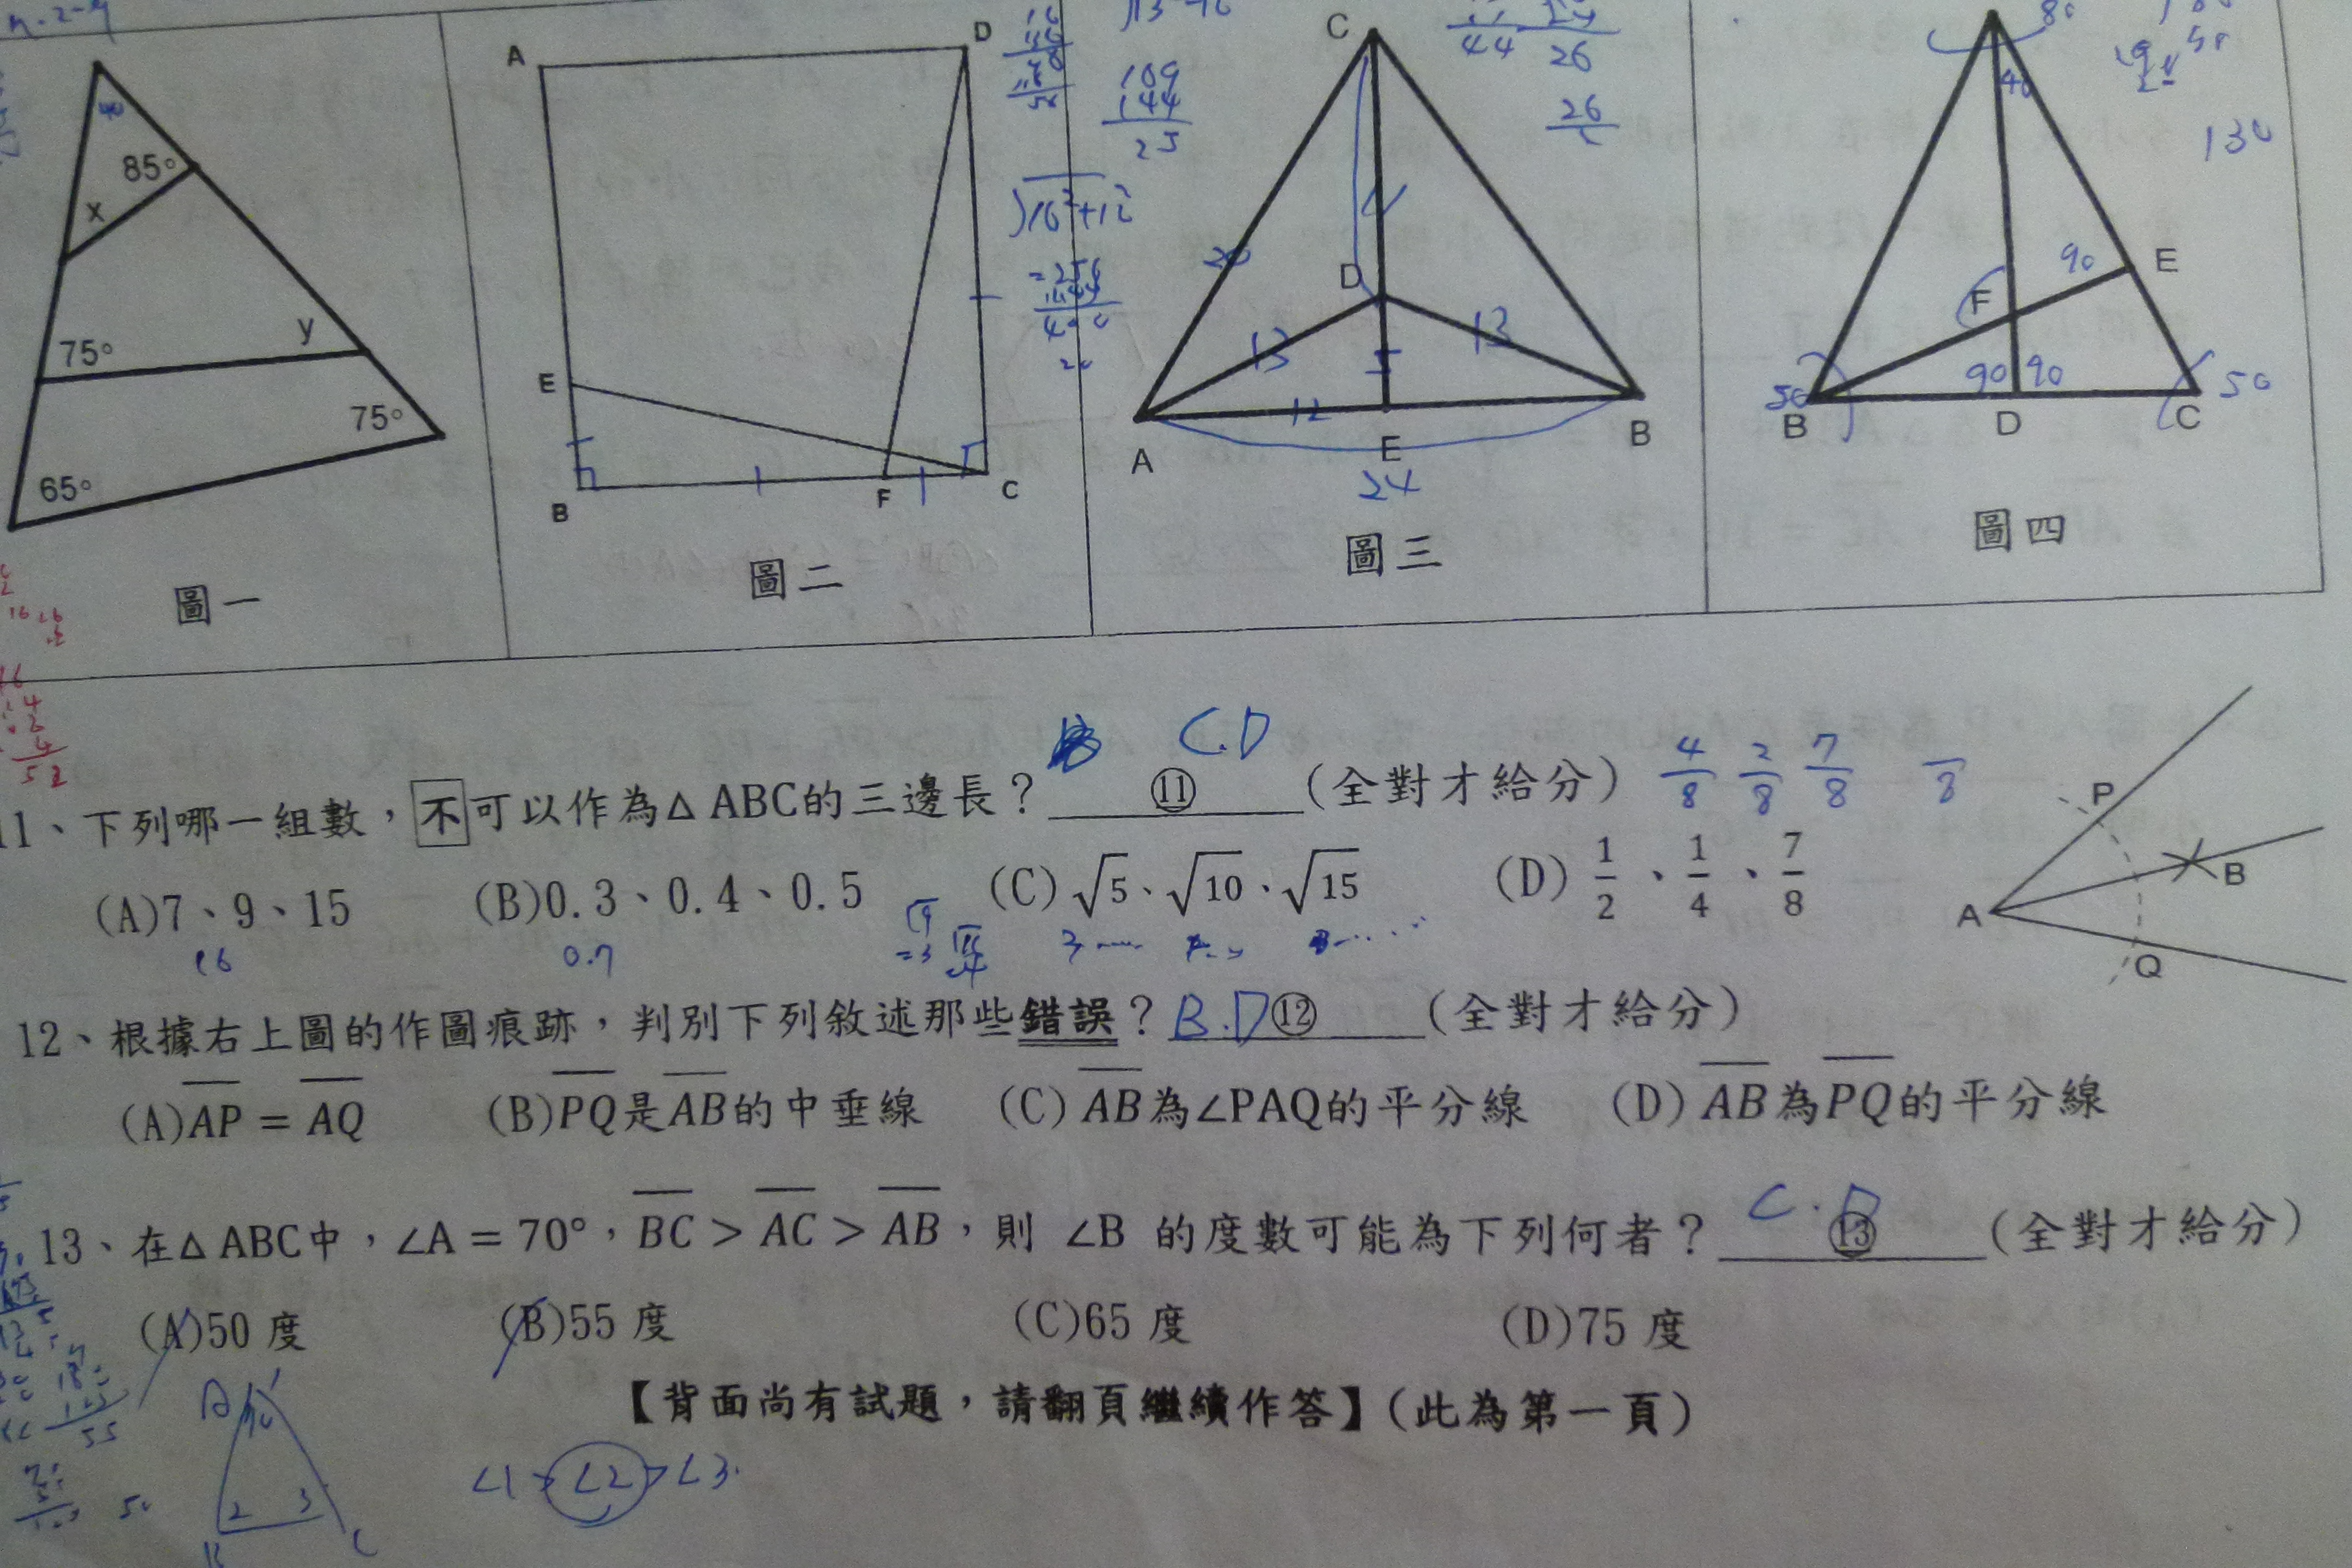 40
85°
x
75°
y
75°
65°
圖一
A
D
E
B
F
C
圖二
109
144
25
44
26
26
C
20
D
13
13
5
12
A
E
B
24
圖三
80
40
130
90
E
F
50
90
90
50
B
D
C
圖四
C.D
11、下列哪一組數，不可以作為△ABC的三邊長？⑪(全對才給分)
4/8 2/8 7/8 /8
(A)7、9、15 (B)0.3、0.4、0.5 (C)√5、√10、√15 (D)1/2、1/4、7/8
16 0.7
P
A
B
Q
12、根據右上圖的作圖痕跡，判別下列敘述那些錯誤？B.D⑫(全對才給分)
(A)AP = AQ (B)PQ是AB的中垂線 (C)AB為∠PAQ的平分線 (D)AB為PQ的平分線
13、在△ABC中，∠A = 70°，BC > AC > AB，則 ∠B 的度數可能為下列何者？⑬(全對才給分)
(A)50 度 (B)55 度 (C)65 度 (D)75 度
【背面尚有試題，請翻頁繼續作答】(此為第一頁)
∠1>∠2>∠3
2 3